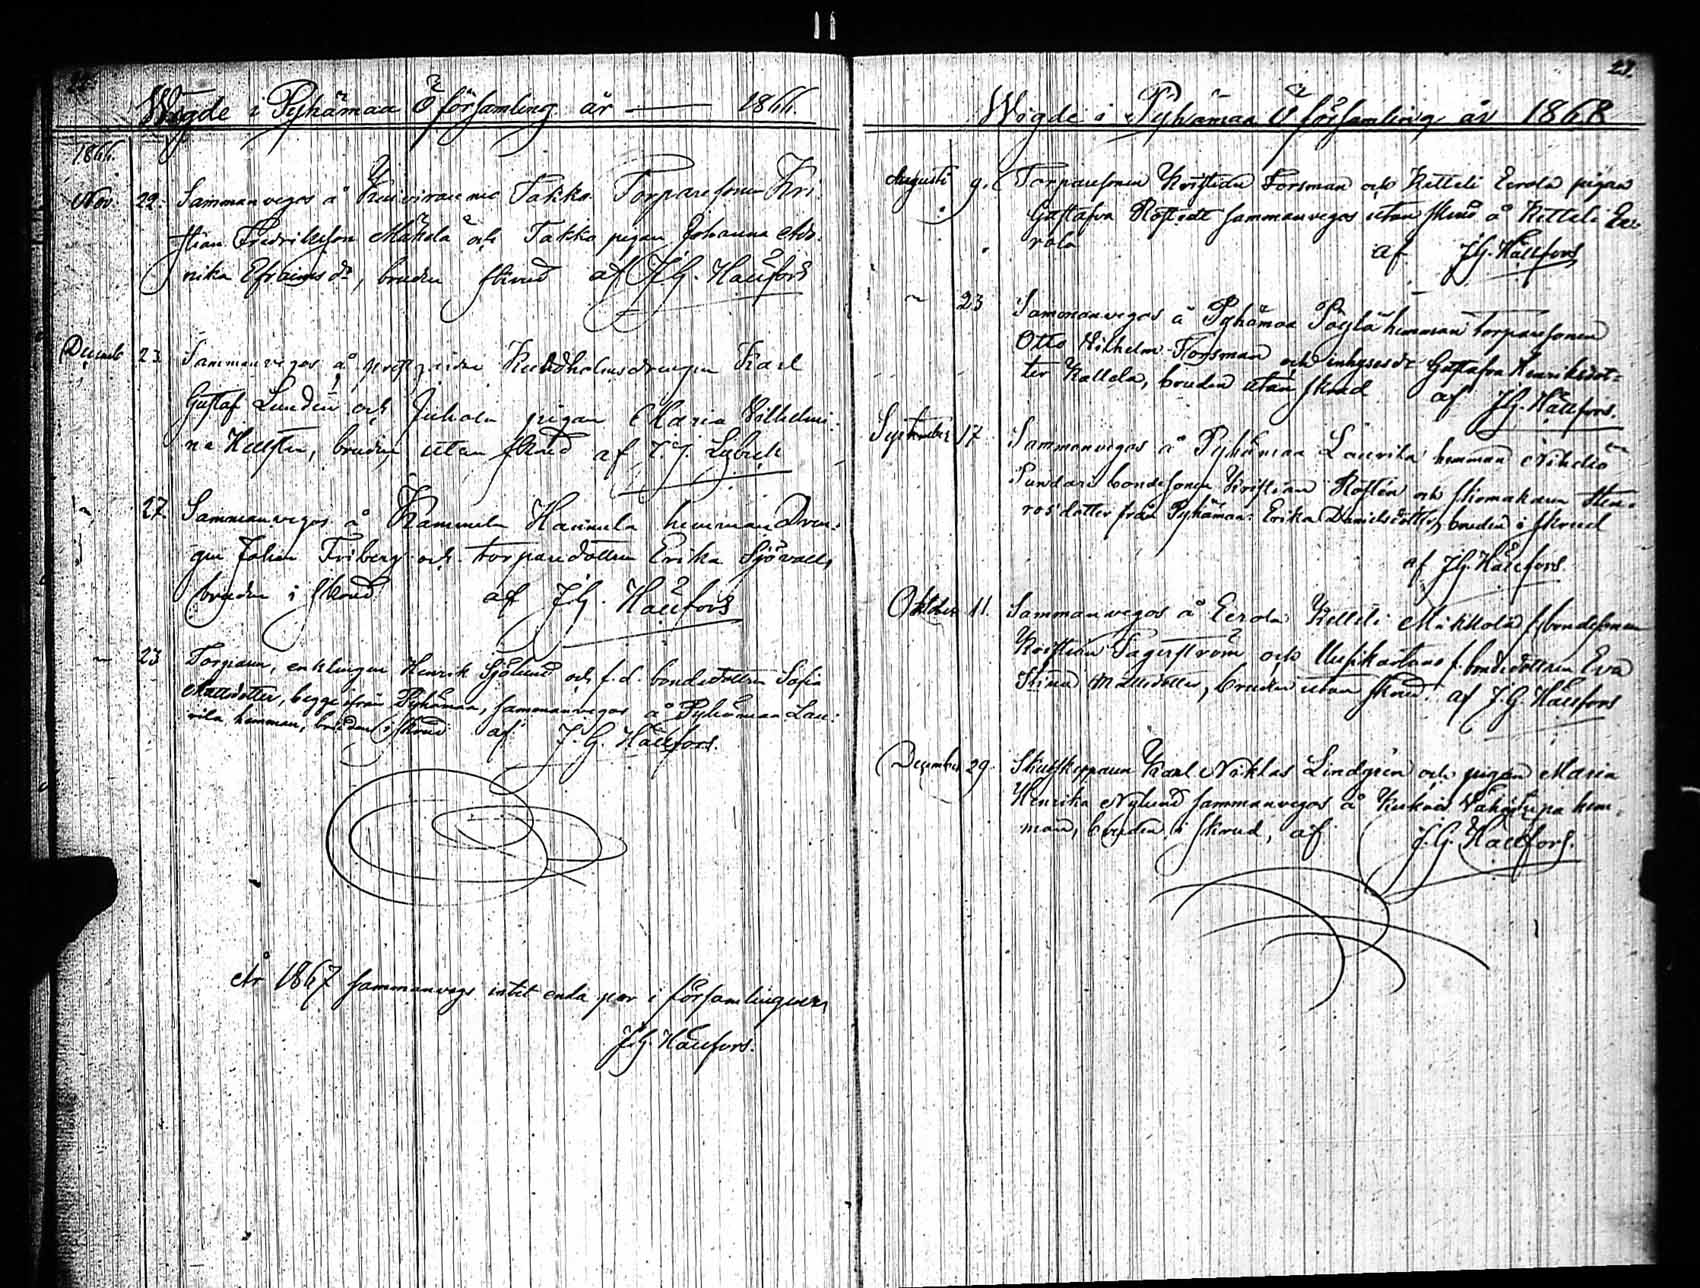 22.
Wigde i Pyhämaa Ö församling år — 1866.
1866.
Nov. 22. Sammanvegos å Takko Torparesonen Kri-
stian Fredriksson Mäkelä och Takko pigan Johanna
nika Efraimsdr, bruden skrud af J.G. Hällfors
Decemb 23. Sammanvegos å drengen Karl
Gustaf Lundén och Juhola pigan Maria Vilhelmi-
na Hellsten, bruden utan skrud af
27. Sammanvegos å Kammela Hannula hemman Dren-
gen Johan Friberg och torparedottren Erika Sjövall,
bruden i skrud af J.G. Hällfors
— 23 Torparen, enklingen Henrik Sjölund och f.d. bondedottren Sofia
Mattsdotter, begge från Pyhämaa, sammanvegos å Pyhämaa Lau-
rila hemman, bruden i skrud af J.G. Hällfors.
År 1867 sammanvegs intet enda par i församlingen
J.G. Hällfors.
23.
Wigde i Pyhämaa Ö församling år 1868
Augusti 9. Torparesonen Kristian Forsman och Ketteli Eerola pigan
Gustafva Röstedt sammanvegos utan skrud å Ketteli Ee-
rola af J.G. Hällfors
— 23 Sammanvegos å Pyhämaa Pöylä hemman torparesonen
Otto Vilhelm Forsman och inhysesdr Gustafva Henriksdot-
ter Kallela, bruden utan skrud af J.G. Hällfors.
September 17 Sammanvegos å Pyhämaa Laurila hemman Nihdiö
Pundari bondesonen Kristian Rostén och skomakaren Sten-
ros' dotter från Pyhämaa: Erika Danielsdotter, bruden i skrud
af J.G. Hällfors.
Oktober 11. Sammanvegos å Eerola Ketteli Mikkola f. bondesonen
Kristian Sagerström och f. bondedottren Eva
Stina Mattsdotter, bruden utan skrud. af J.G. Hällfors
December 29. Karl Niklas Lindgrén och pigan Maria
Henrika Nylund sammanvegos å Vähätupa hem-
man, bruden i skrud, af J.G. Hällfors.